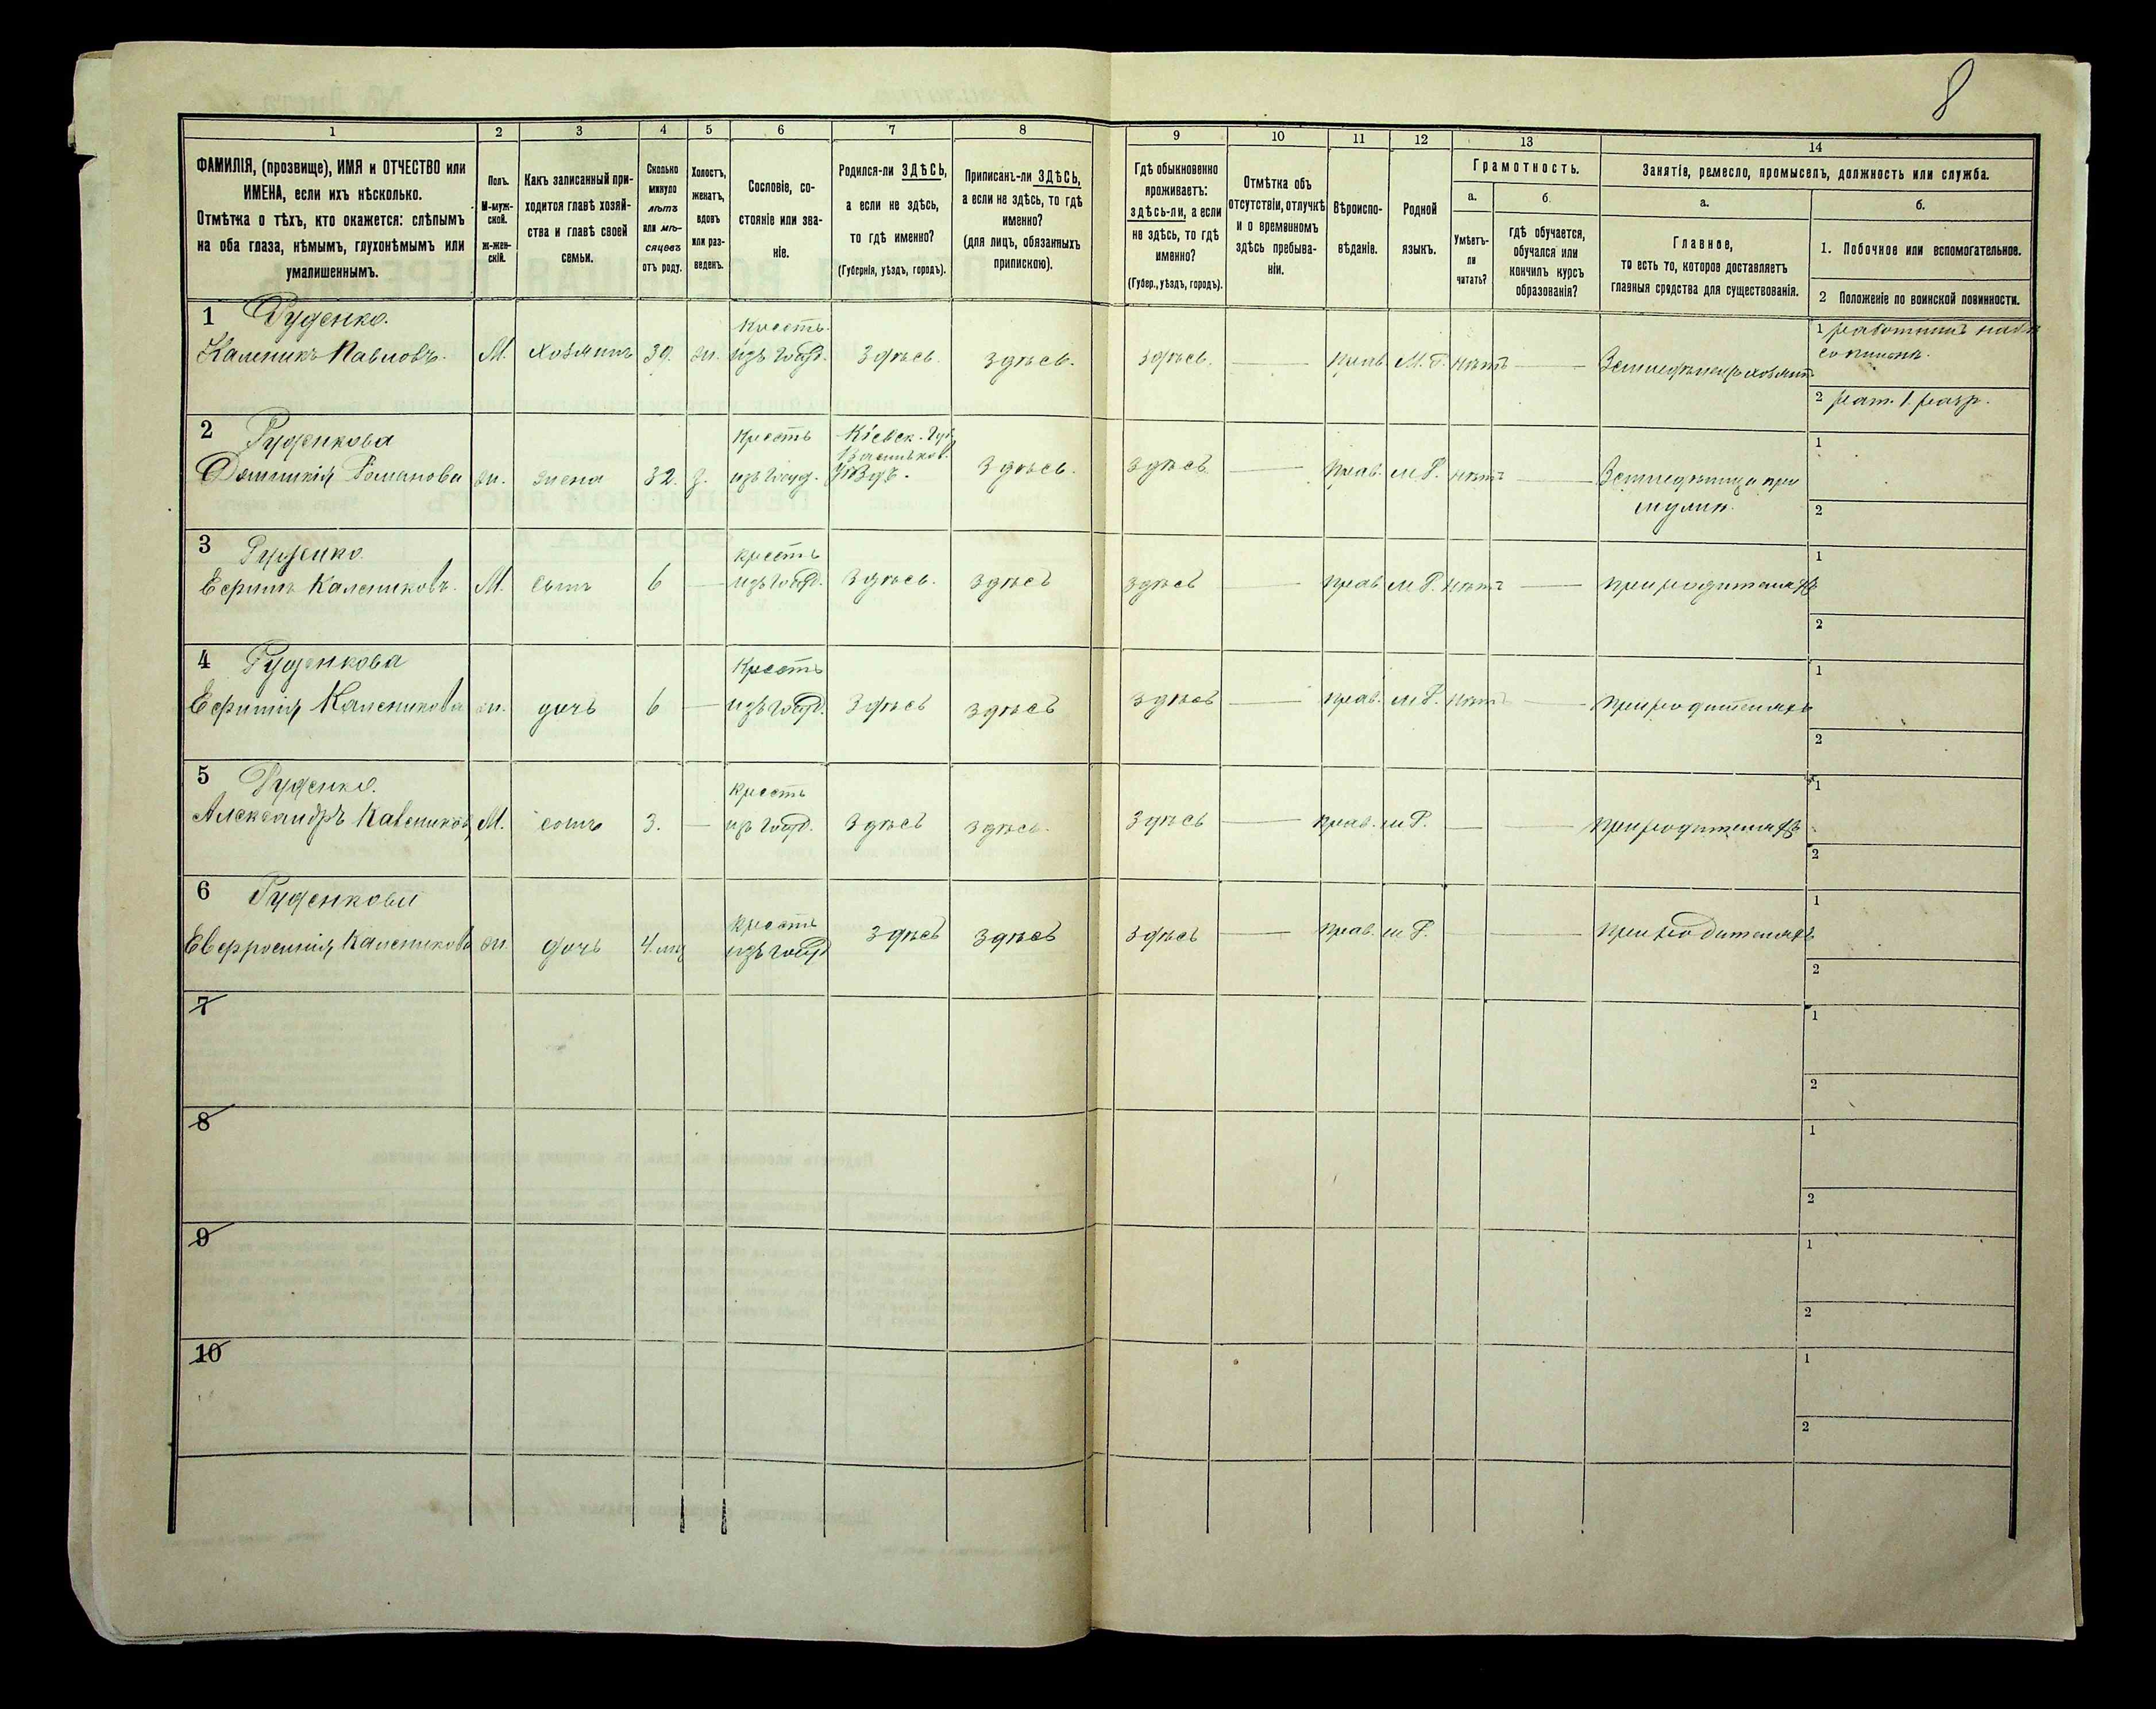 8
1 2 3 4 5 6 7 8 9 10 11 12 13 14
ФАМИЛІЯ, (прозвище), ИМЯ и ОТЧЕСТВО или
ИМЕНА, если ихъ нѣсколько.
Отмѣтка о тѣхъ, кто окажется: слѣпымъ
на оба глаза, нѣмымъ, глухонѣмымъ или
умалишеннымъ.
Полъ.
М-муж-
ской.
ж-жен-
скій.
Какъ записанный при-
ходится главѣ хозяй-
ства и главѣ своей
семьи.
Сколько
минуло
лѣтъ
или мѣ-
сяцевъ
отъ роду.
Холостъ,
женатъ,
вдовъ
или раз-
веденъ.
Сословіе, со-
стояніе или зва-
ніе.
Родился-ли ЗДѢСЬ,
а если не здѣсь,
то гдѣ именно?
(Губернія, уѣздъ, городъ).
Приписанъ-ли ЗДѢСЬ,
а если не здѣсь, то гдѣ
именно?
(для лицъ, обязанныхъ
припискою).
Гдѣ обыкновенно
проживаетъ:
здѣсь-ли, а если
не здѣсь, то гдѣ
именно?
(Губер., уѣздъ, городъ).
Отмѣтка объ
отсутствіи, отлучкѣ
и о временномъ
здѣсь пребыва-
ніи.
Вѣроиспо-
вѣданіе.
Родной
языкъ.
Грамотность.
а.
Умѣетъ-
ли
читать?
б.
гдѣ обучается,
обучался или
кончилъ курсъ
образованія?
Занятіе, ремесло, промыселъ, должность или служба.
а.
Главное,
то есть то, которое доставляетъ
главныя средства для существованія.
б.
1. Побочное или вспомогательное.
2 Положеніе по воинской повинности.
1 Руденко.
Каленикъ Павловъ. М. хозяинъ 39. ж. Крест. изъ госуд. Здѣсь. Здѣсь. здѣсь. — прав. М. Р. нѣтъ — Земледѣлецъ хозяинъ
1
2 рат. 1 разр.
2 Руденкова
Домникія Романова ж. жена 32. з. Крестъ изъ госуд. Кіевск. Губ. Васильков. Уѣздъ. Здѣсь. Здѣсь — прав. м Р. нѣтъ — Земледѣлица при
мужѣ.
1
2
3 Руденко
Ефимъ Калениковъ. М. сынъ 6 — крестъ изъ госуд. Здѣсь. Здѣсь Здѣсь — прав. м Р. нѣтъ — при родителяхъ
1
2
4 Руденкова
Ефимія Каленикова ж. дочь 6 — Крестъ изъ госуд. Здѣсь Здѣсь Здѣсь — прав. м Р. нѣтъ — при родителяхъ
1
2
5 Руденко.
Александръ Калениковъ М. сынъ 3. — крестъ из госуд. Здѣсь Здѣсь. Здѣсь — прав. м Р. — — при родителяхъ
1
2
6 Руденкова
Евфросинія Каленикова ж. дочь 4. мц крестъ изъ госуд Здѣсь Здѣсь Здѣсь — прав. м Р. — — при родителяхъ
1
2
7
1
2
8
1
2
9
1
2
10
1
2